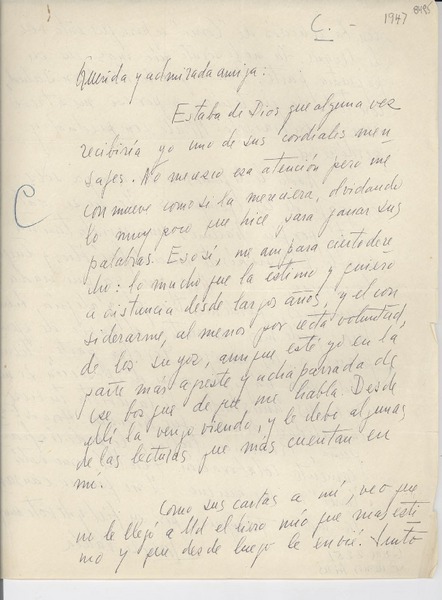 C. -
1947 8485
Querida y admirada amiga:
Estaba de Dios que alguna vez
recibiría yo uno de sus cordiales men
sajes. No merezco esa atención pero me
conmueve como si la mereciera, olvidando
lo muy poco que hice para ganar sus
palabras. Eso sí, me ampara cierto dere
cho: lo mucho que la estimo y quiero
a distancia desde largos años, y el con
siderarme, al menos por recta voluntad,
de los suyos, aunque esté yo en la
parte más agreste y achaparrada de
ese bosque de que me habla. Desde
allí la vengo viendo, y le debo algunas
de las lecturas que más cuentan en
mí.
Como sus cartas a mí, veo que
no le llegó a Ud el libro mío que mas esti
mo y que desde luego le envié. Junto
C